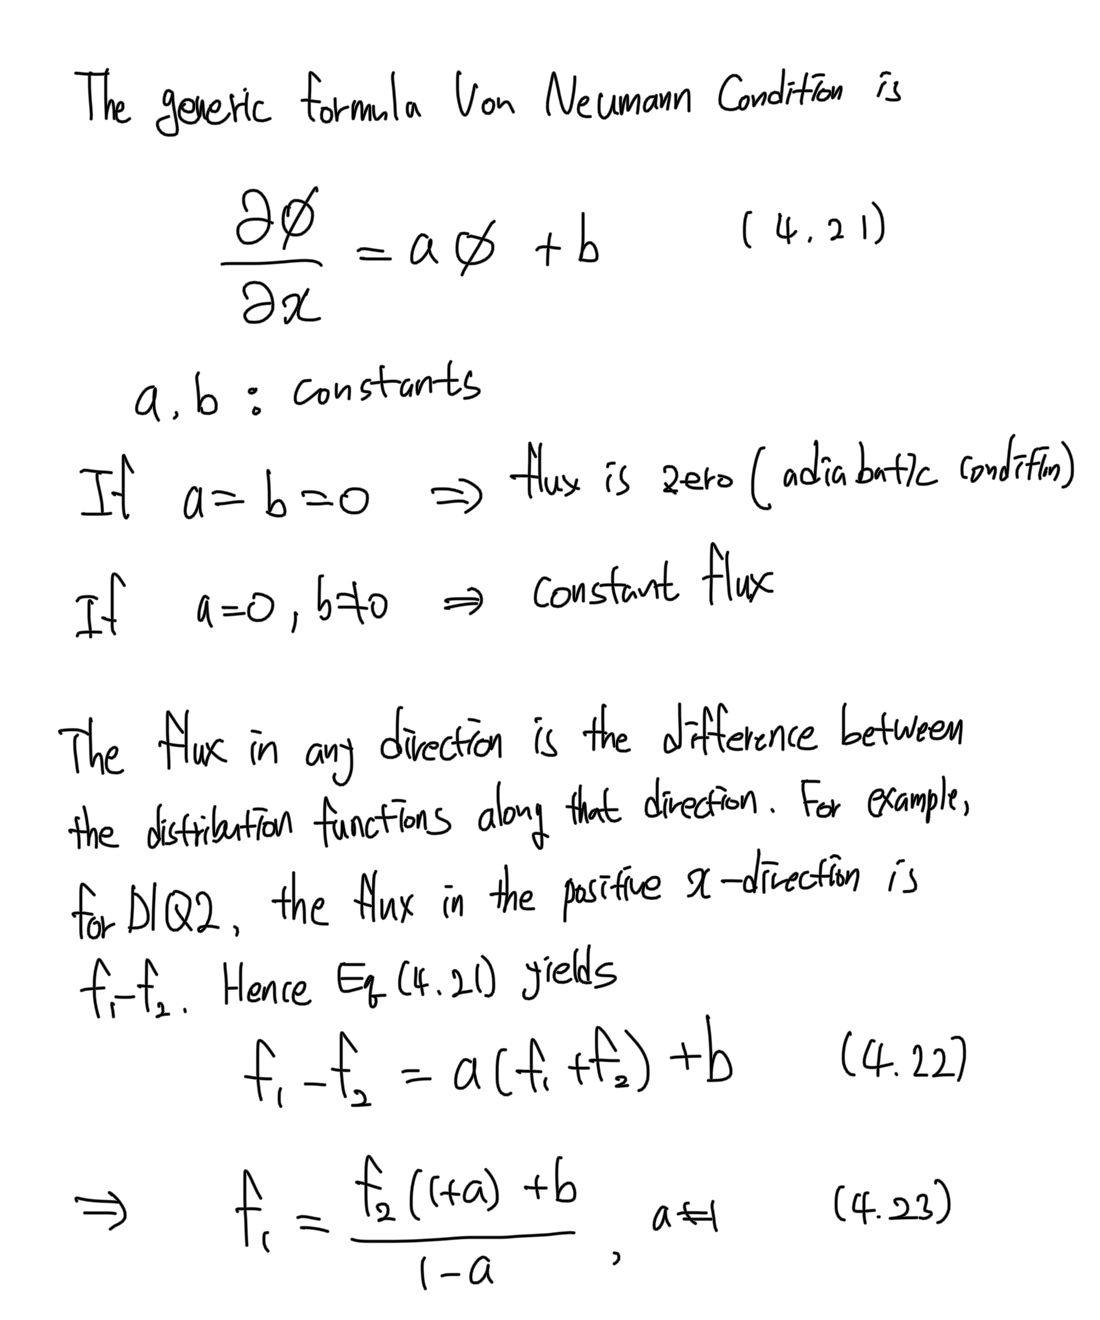 The generic formula Von Neumann Condition is
∂ϕ/∂x = aϕ + b (4.21)
a, b : constants
If a = b = 0 ⇒ flux is zero (adiabatic condition)
If a=0, b≠0 ⇒ constant flux
The flux in any direction is the difference between
the distribution functions along that direction. For example,
for D1Q2, the flux in the positive x-direction is
f₁-f₂. Hence Eq (4.21) yields
f₁ - f₂ = a(f₁ + f₂) + b (4.22)
⇒ f₁ = (f₂(1+a) + b)/(1-a), a≠1 (4.23)